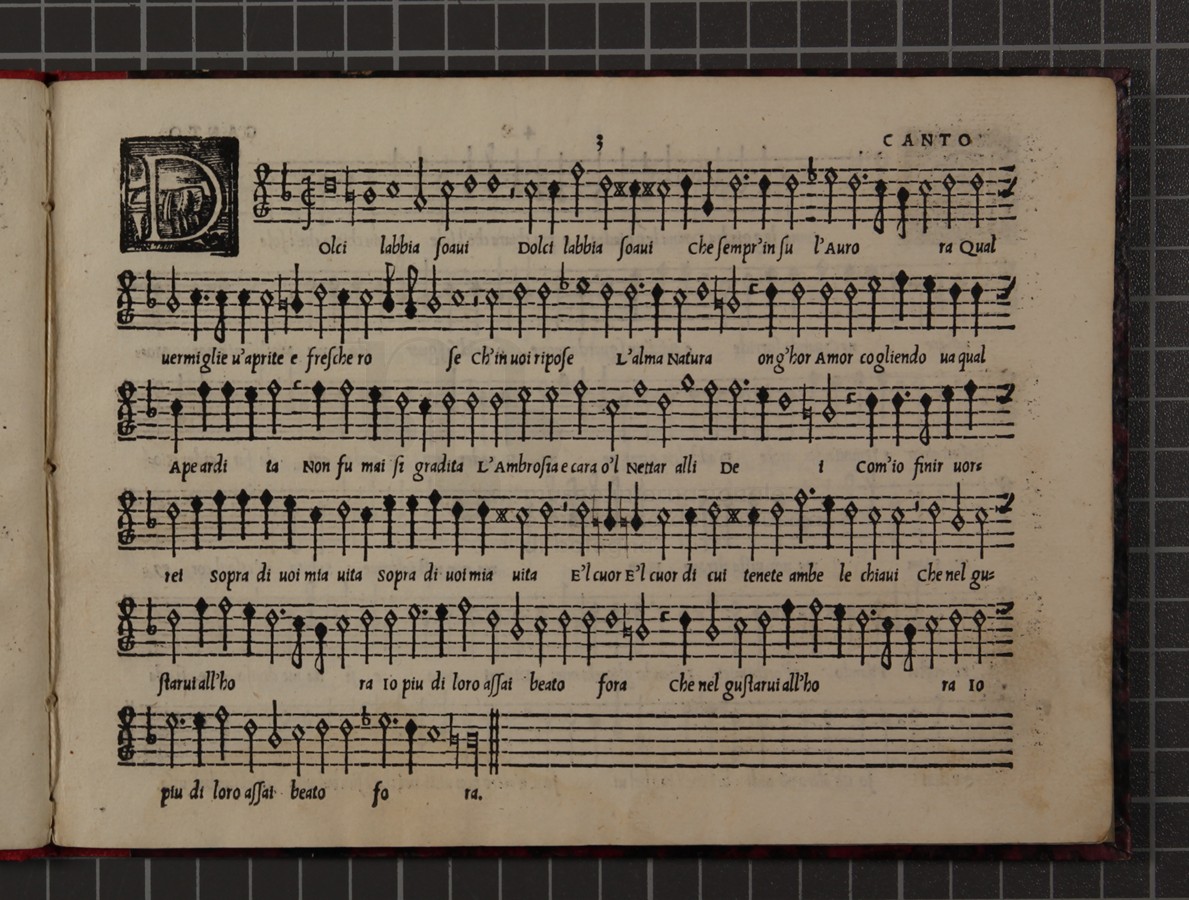 3 CANTO
DOlci labbia ſoaui Dolci labbia ſoaui Che ſempr'in ſu l'Auro ra Qual
uermiglie u'aprite e freſche ro ſe Ch'in uoi ripoſe L'alma Natura ong'hor Amor cogliendo ua qual
Ape ardi ta Non fu mai ſi gradita L'Ambroſia e cara o'l Nettar alli De i Com'io finir uor=
rei Sopra di uoi mia uita Sopra di uoi mia uita E'l cuor E'l cuor di cui tenete ambe le chiaui Che nel gu=
ſtarui all'ho ra Io piu di loro aſſai beato fora Che nel guſtarui all'ho ra Io
piu di loro aſſai beato fo ra.